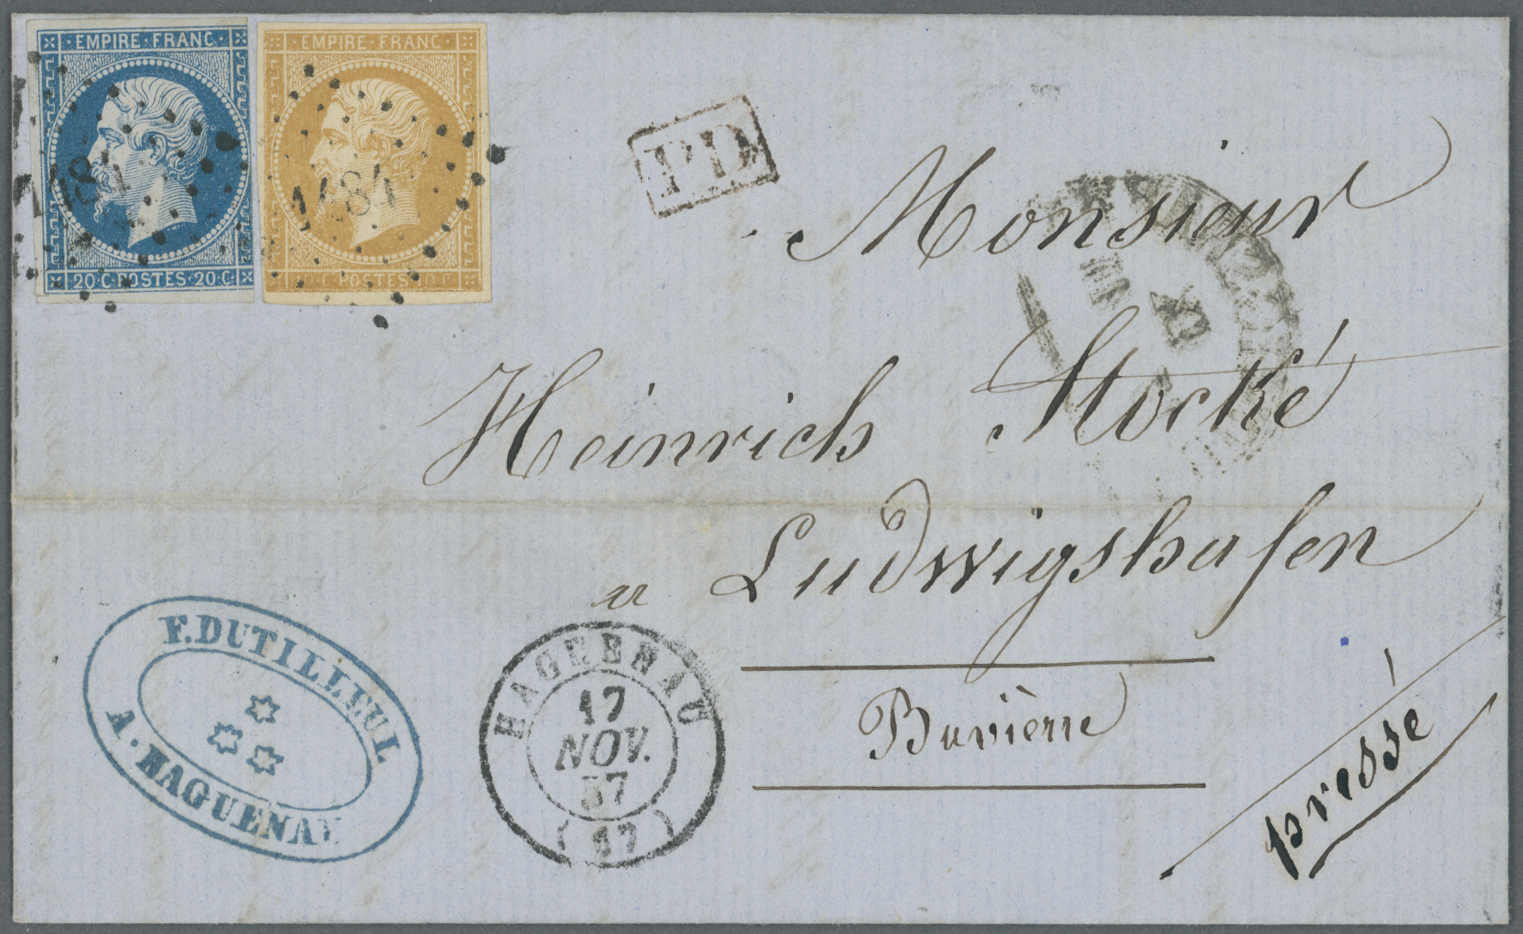 EMPIRE FRANC
20·C·POSTES·20·C·
1484
EMPIRE·FRANC·
C·POSTES·10·C
1484
PD
Monsieur
Heinrich Stocké
a Ludwigshafen
Bavière
pressé
HAGUENAU
17
NOV.
57
(67)
F. DUTILLEUL
A·HAGUENAU